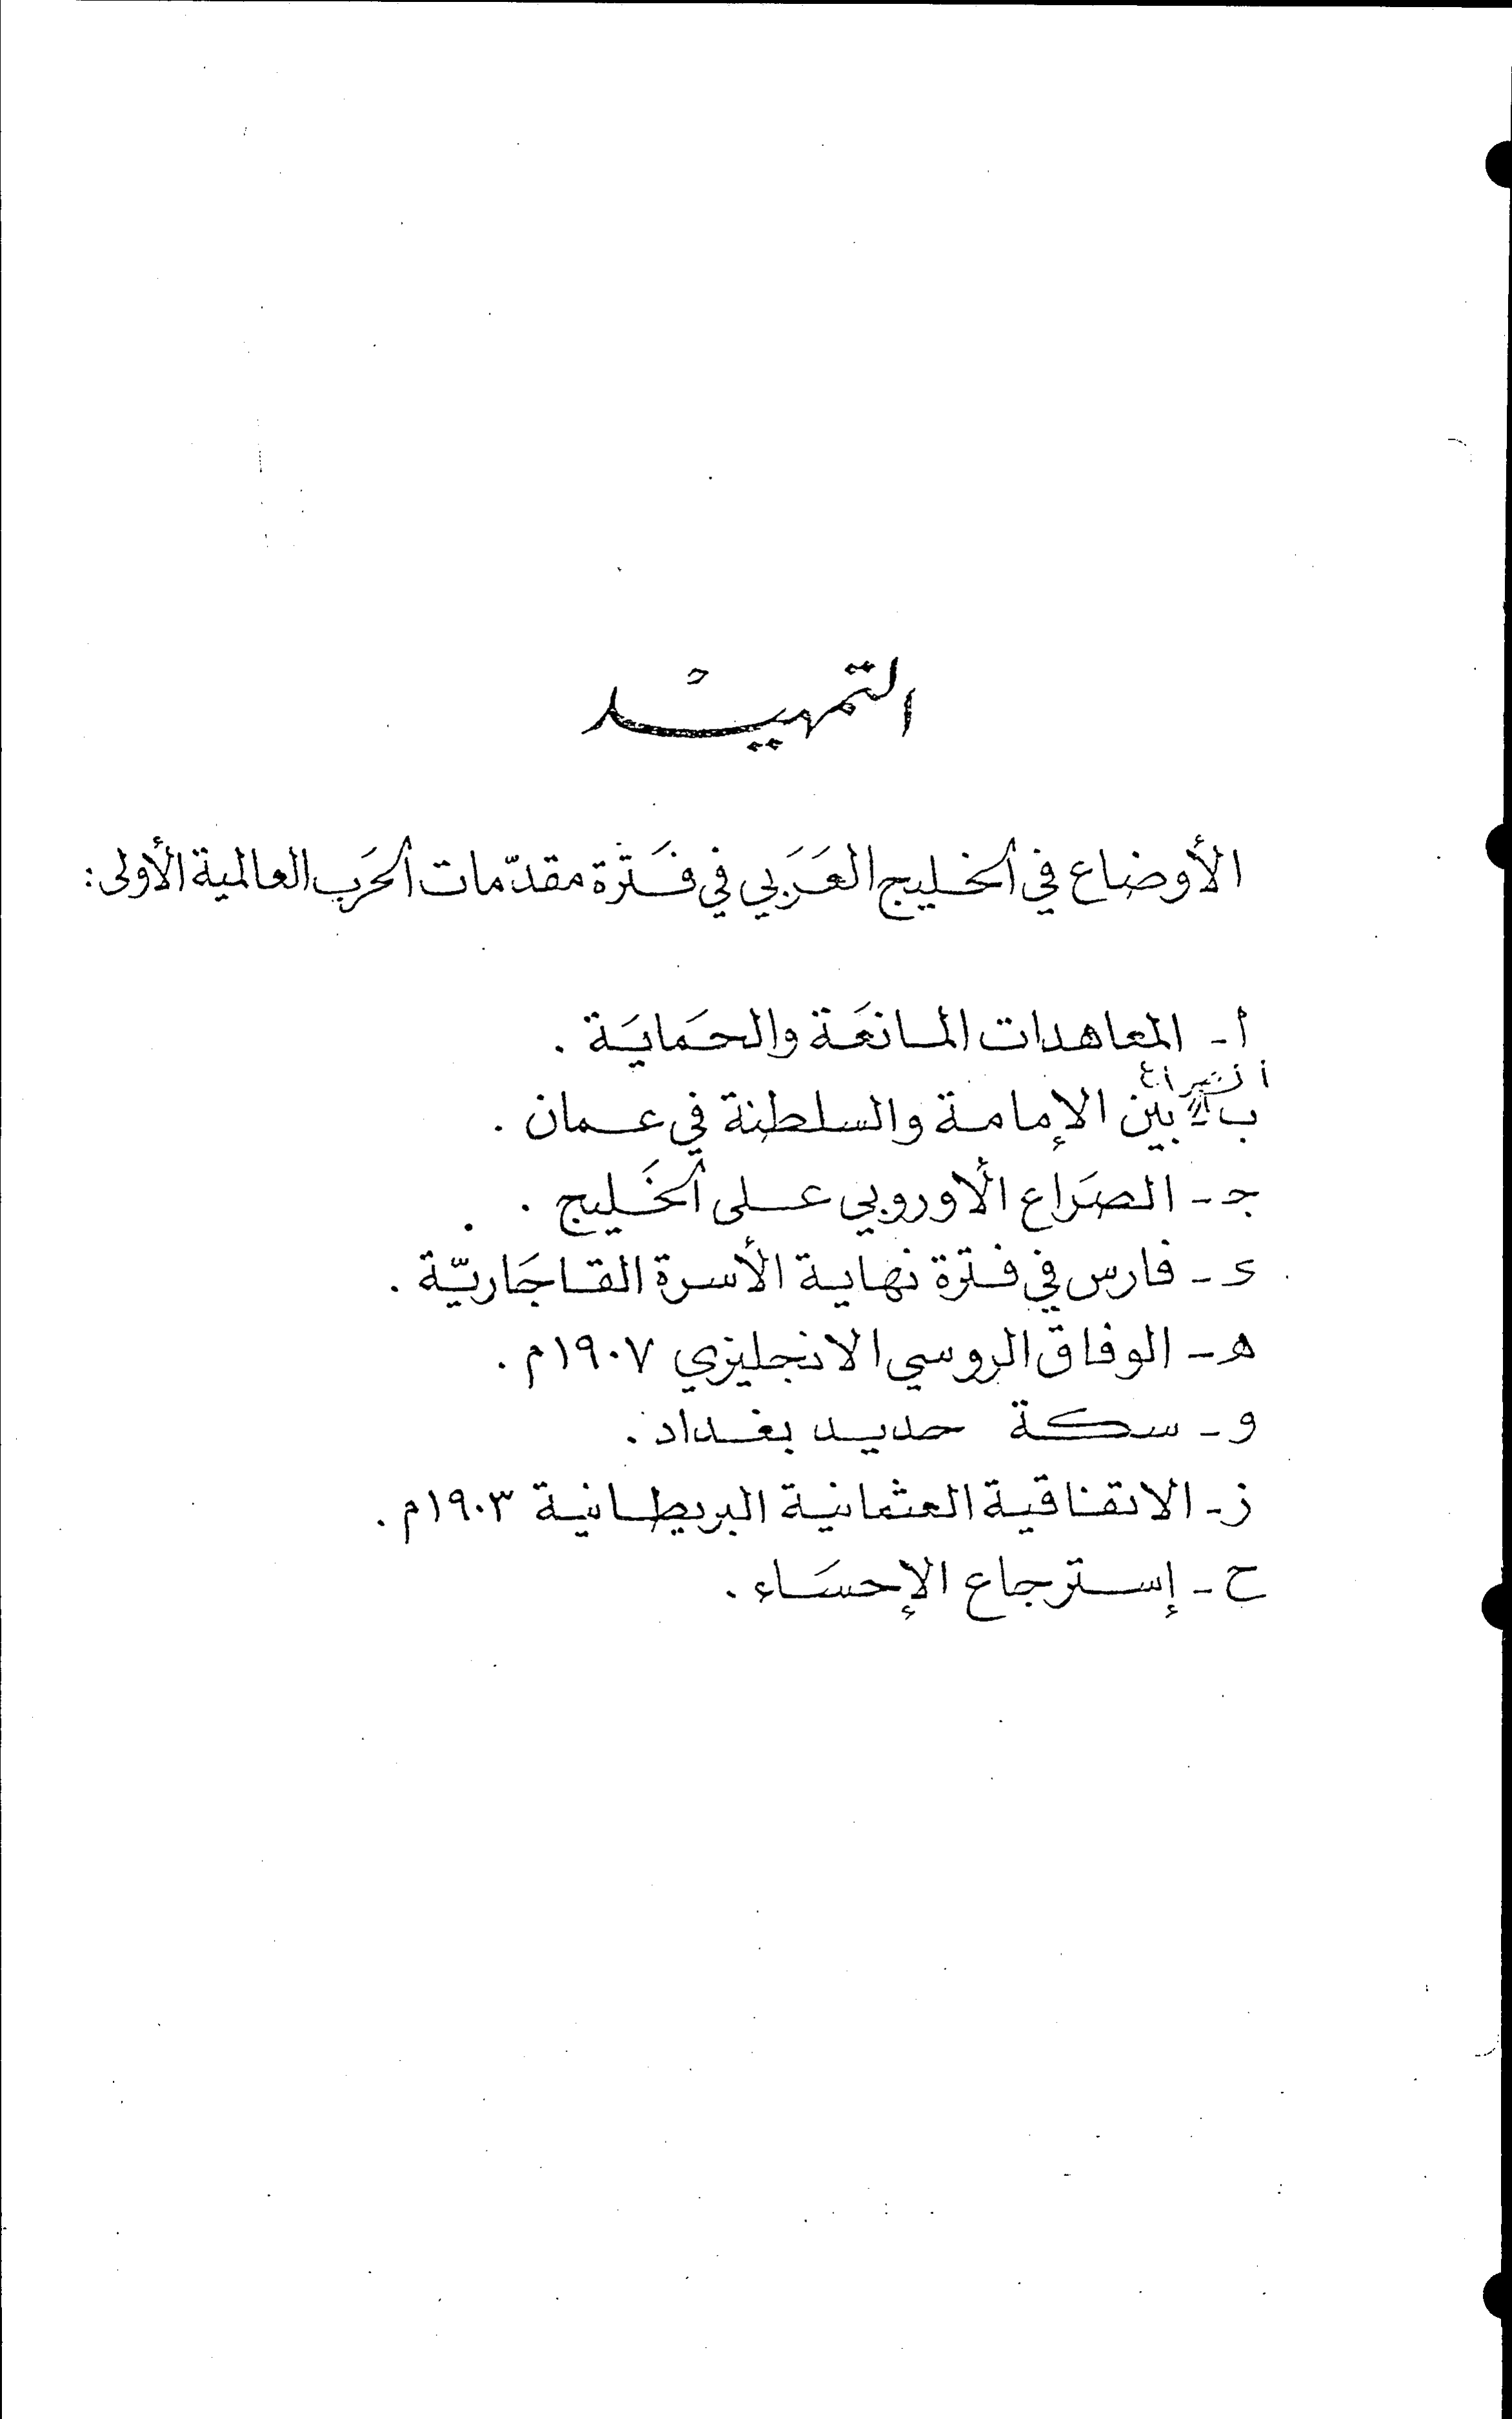 التمهيد
الأوضاع في الخليج العَرَبي في فَتْرة مقدّمات الحَرب العالمية الأولى:
أ - المعاهدات المانعَة والحمَايَة .
الصراع
ب - بين الإمامة والسلطنة في عمان .
جـ - الصرَاع الأوروبي على الخَليج .
د - فارس في فترة نهاية الأسرة القاجَاريّة .
هـ - الوفاق الروسي الانجليزي ١٩٠٧م .
و - سكة حديد بغداد .
ز - الاتفاقية العثمانية البريطانية ١٩٠٣م .
ح - إسترجاع الإحسَاء .